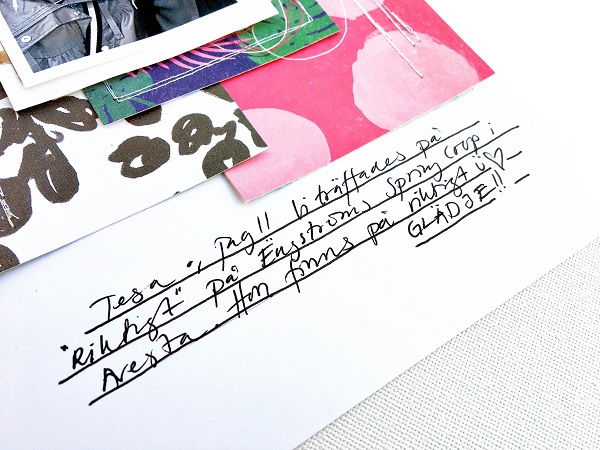 Tesa, jag!! Vi träffades på
"Riktigt" på Engströms Spring Crop i
Avesta. Hon finns på riktigt ü ♡
GLÄDJE!!